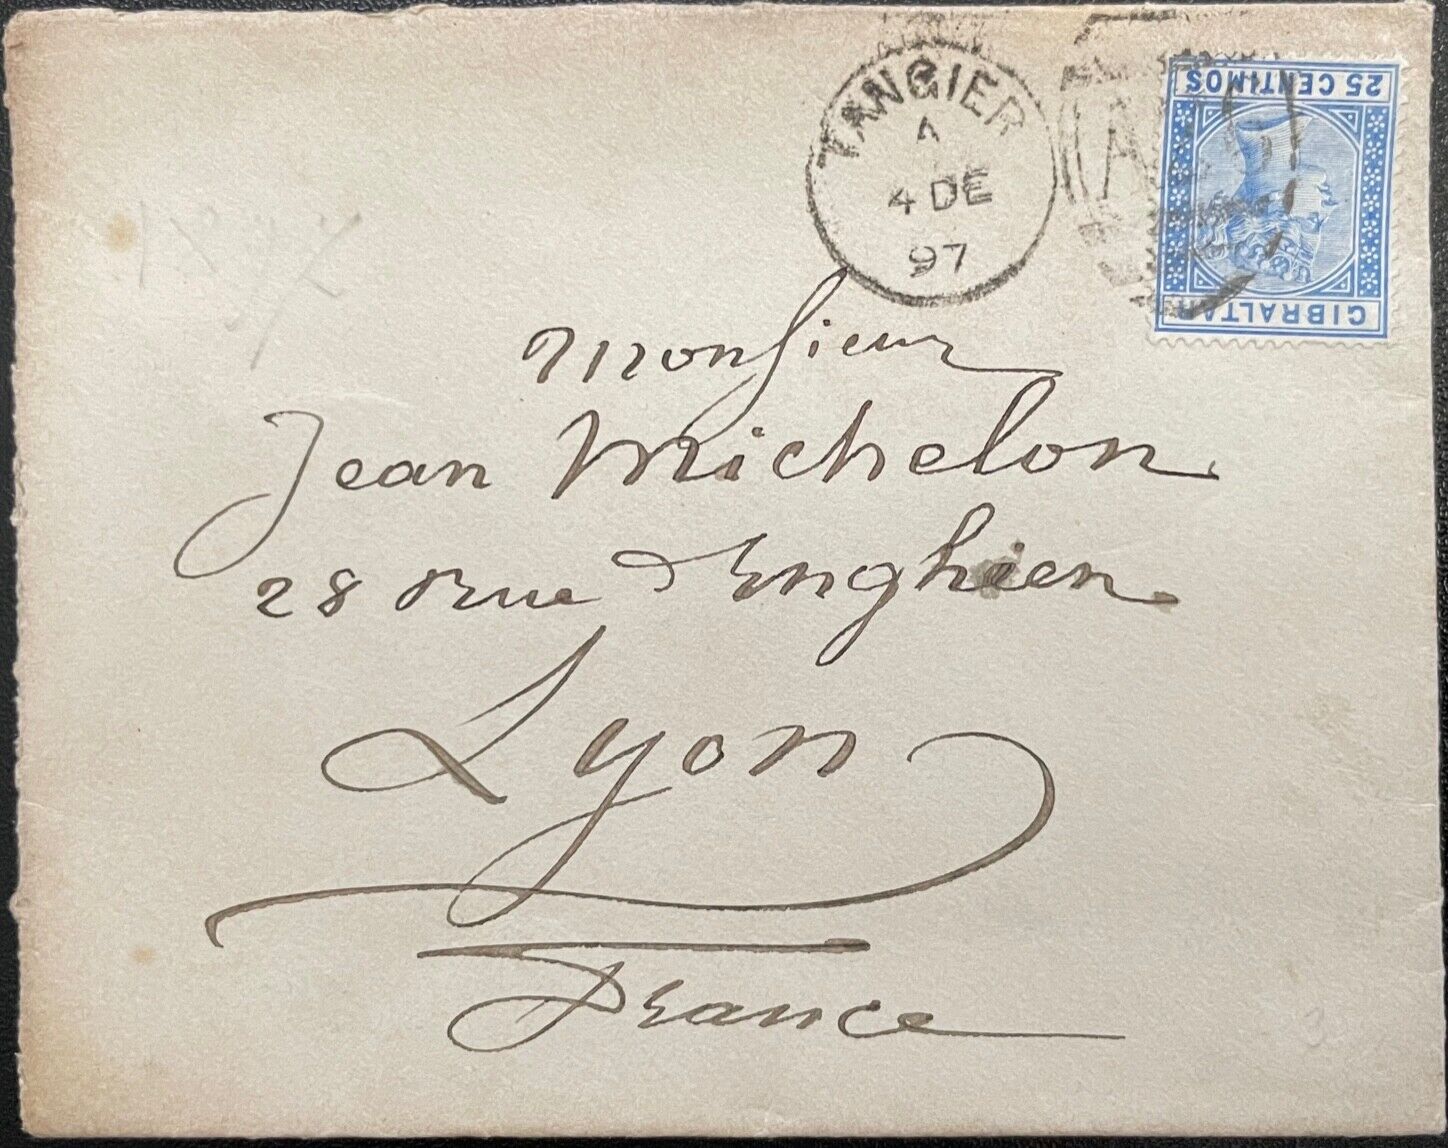 TANGIER
A
4 DE
97
25 CENTIMOS
GIBRALTAR
Monsieur
Jean Michelon
28 Rue d'Enghien
Lyon
France